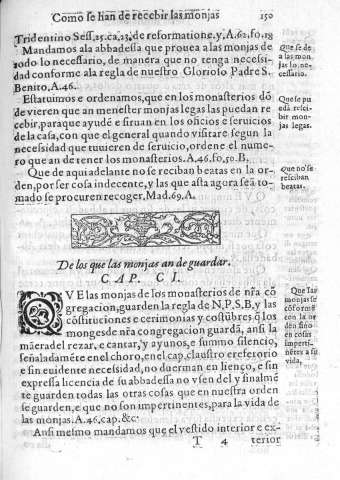 Como se han de recebir las monjas 150
Tridentino Sess.25.ca,23,de reformatione,y,A.62,fo,18
Mandamos ala abbadessa que prouea a las monjas de
todo lo necessario, de manera que no tenga necessi-
dad conforme ala regla de nuestro Glorioso Padre S.
Benito, A.46.
Que se dẽ
a las mon
jas lo ne-
cessario.
Estatuimos e ordenamos, que en los monasterios dõ
de vieren que an menester monjas legas las puedan re
cebir, para que ayudẽ e siruan en los oficios e seruicios
de la casa, con que el general quando visitare segun la
necessidad que tuuieren de seruicio, ordene el nume-
ro que an de tener los monasterios. A.46.fo,50.B.
Que se pu
edã resci-
bir mon-
jas legas.
Que de aqui adelante no se reciban beatas en la or-
den, por ser cosa indecente, y las que asta agora seã to-
mado se procuren recoger, Mad.69,A.
Que no se
resciban
beatas.
De los que las monjas an de guardar.
CAP. CI.
QVE las monjas de los monasterios de nr̃a cõ
gregacion, guarden la regla de N,P,S,B,y las
cõstituciones e cerimonias y costũbres q̃ los
monges de nr̃a congregacion guardã, ansi la
mãera del rezar, e cantar, y ayunos, e summo silencio,
señaladamẽte en el choro, en el cap. claustro e refetorio
e sin euidente necessidad, no duerman en lienço, e sin
expressa licencia de su abbadessa no vsen del y finalmẽ
te guarden todas las otras cosas que en nuestra orden
se guarden, e que no son impertinentes, para la vida de
las monjas. A.46,cap.&c.
Que las
monjas se
cõforme
con la or
den sino
en cosas
impertĩ-
nẽtes a su
vida.
Ansi mesmo mandamos que el vestido interior e ex-
T 4 terior